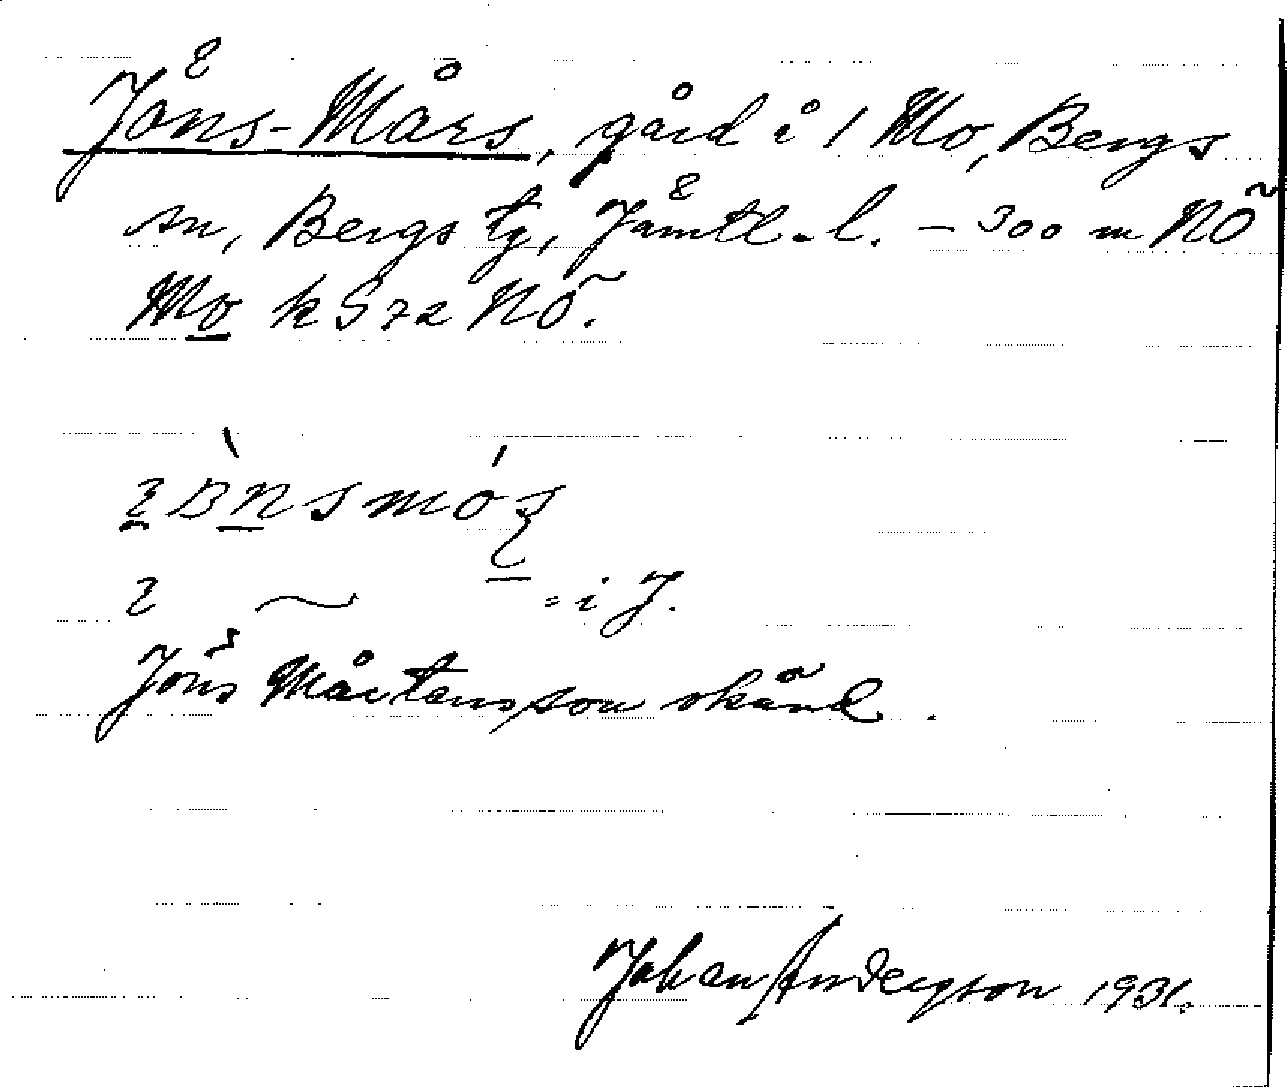 Jöns-Mårs, gård i 1 Mo, Bergs
sn, Bergs tg, Jämtl. l. – 300 m NÖ
Mo k S72 NÖ.
= i J.
Jöns Mårtensson okänd.
Johan Anderzson 1931.